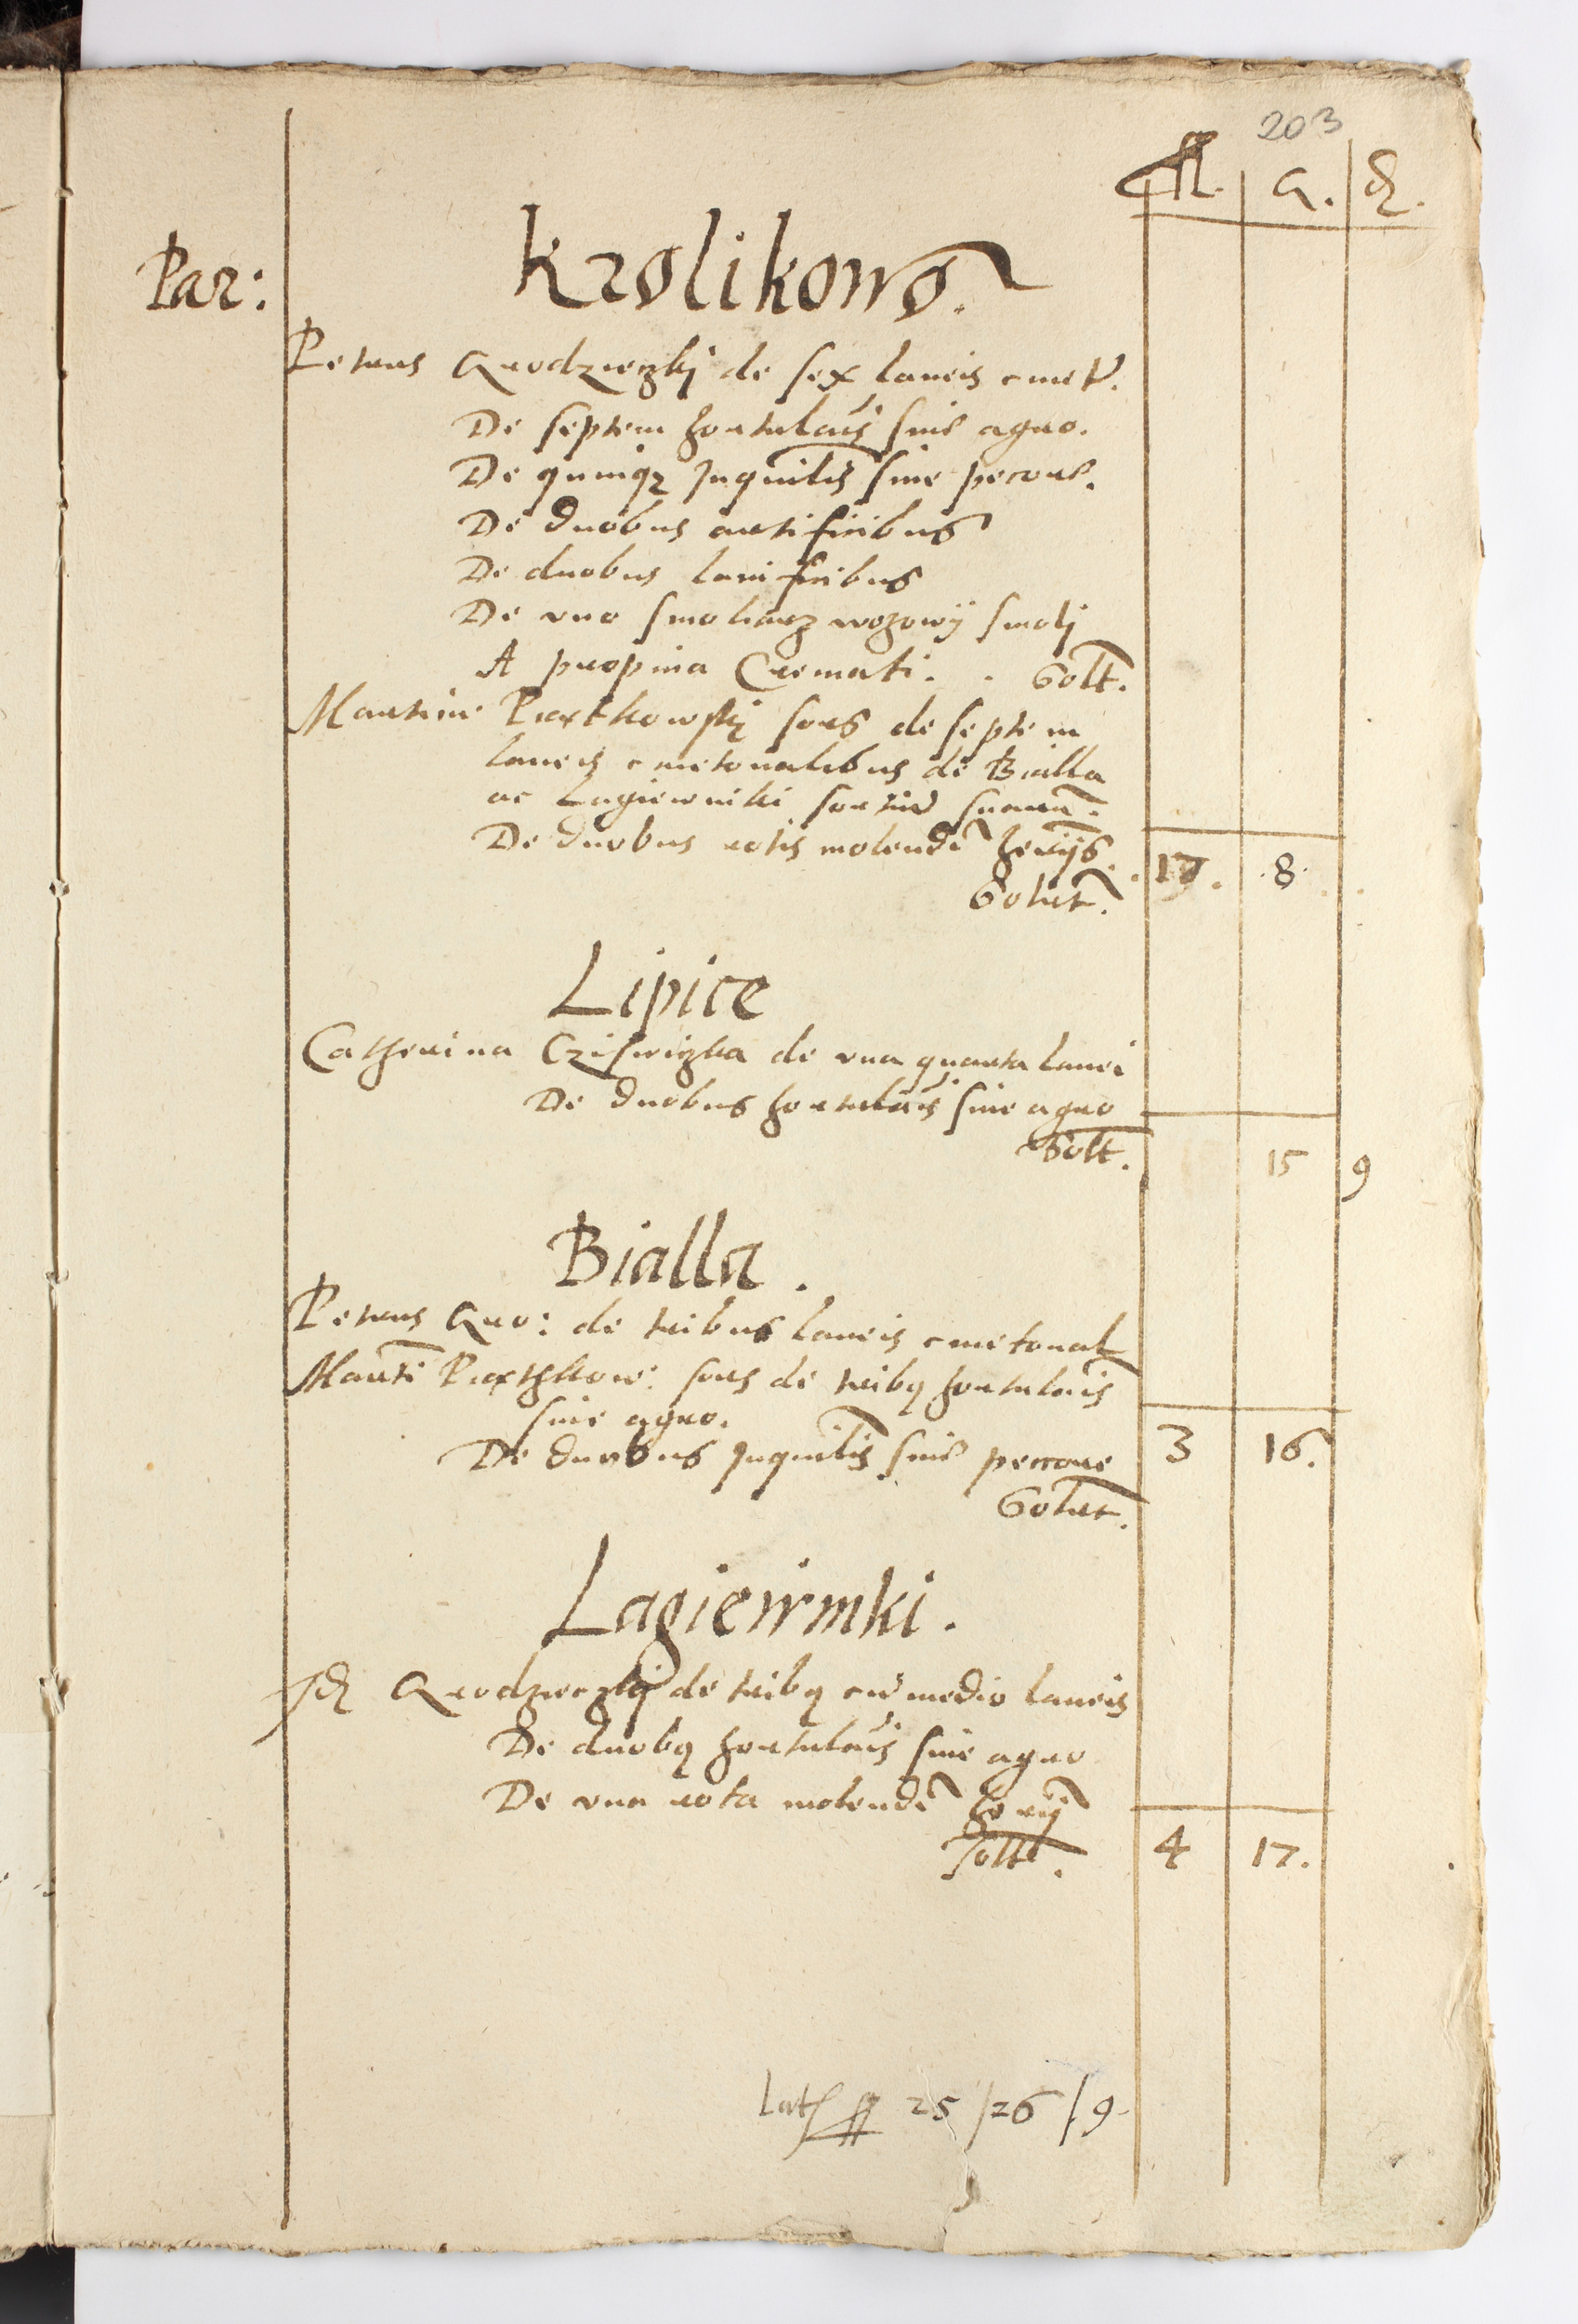 203
fl. g. d.
Par: Krolikowo.
Petrus Grodzieczkj de sex laneis cmet.
De septem hortulanis sine agro.
De quinqz Inquilis sine pecore.
De duobus artificibus
De duobus lanificibus
De vno smolarz wozowÿ smolj
A propina Cremati. . Solt.
Martinus Piextkowskj sors de septem
laneis cmetonalibus de Bialla
ac Lagiewniki sortiu suarum.
De duobus rotis molendi herijs.
Soluet. 17. 8.
Lipice
Catherina de vna quarta lanei
De duobus hortulanis sine agro
Solt. 15 9
Bialla.
Petrus Gro: de tribus laneis cmetonal
Marti Piexthkow: sors de tribq hortulanis
sine agro.
De duobus Inquilis sine pecrore 3 16.
Soluet.
Lagiewniki.
Id Grodzieczkj de tribq cu medio laneis
De duobq hortulanis sine agro
De vna rota molendi herij
Solt. 4 17.
Latus fl 25 / 26 / 9